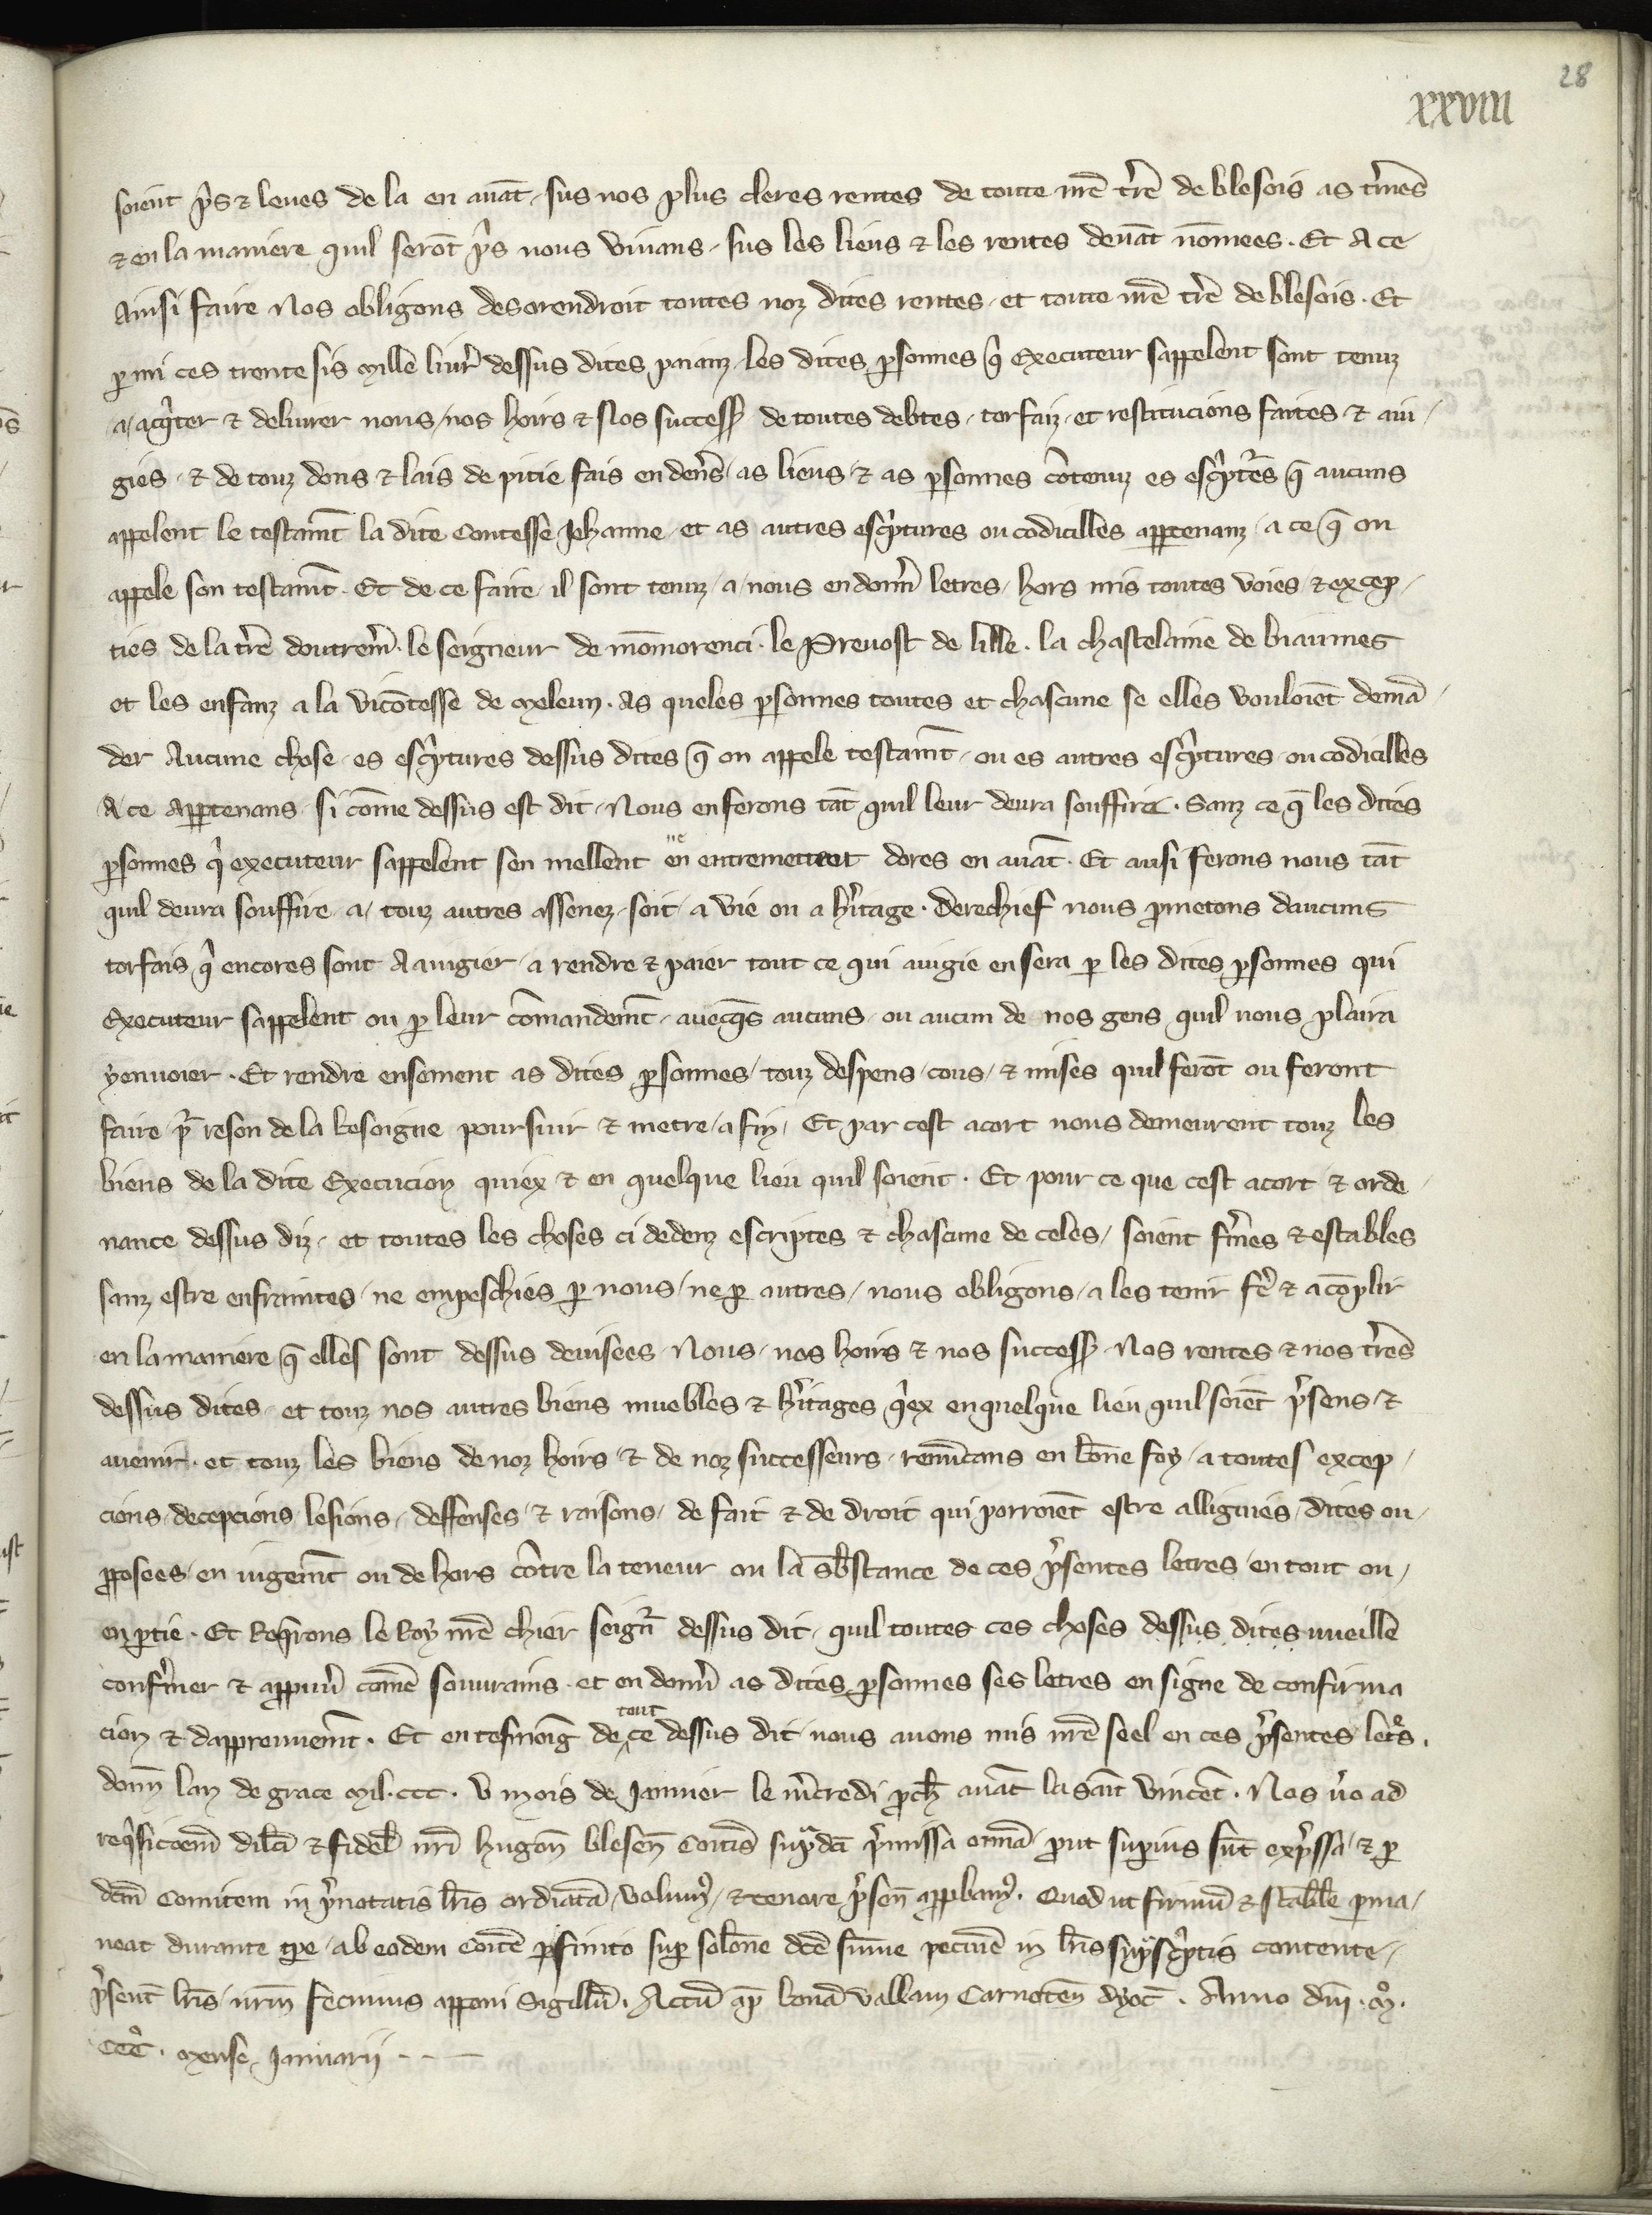 28
xxviii
soient p̾s & leues de la en auāt sus nos plus cleres rentes de toute nr̄e tr̄re de blesois as t̾mes
& en la maniere quil serōt p̾s nous viuans sus les lieus & les rentes deuāt nōmees. Et A ce
Ainsi faire Nos obligons desorendroit toutes noz dites rentes et toute nr̄e tr̄re de blesois. Et
ꝑmi ces trente sis mille liur̄ dessus dites paianz les dites ꝑsonnes q̾ executeur sappelent sont tenuz
a aq̾ter & deliurer nous nos hoirs & Nos success̄ de toutes debtes torfaiz et restitucions faites & iui
gies & de touz dons & lais de pitie fais en den̄s as lieus & as ꝑsonnes cōtenuz es esc̾ptr̄es q̄ aucuns
appelent le testam̄t la dite Contesse Jehanne et as autres esc̾ptures ou codicilles apꝑtenanz a ce q̄ on
appele son testam̄t. Et de ce faire il sont tenuz a nous en donn̄ letres hors mis toutes voies & excep
ties de la tr̄re doutrem̄. le seigneur de mōmorenci. le Preuost de lille. la chastelaine de biaumes
et les enfanz a la vicōtesse de meleun. As queles ꝑsonnes toutes et chascune se elles vouloiēt demā
der Aucune chose es esc̾ptures dessus dites q̄ on appele testam̄t ou es autres esc̾ptures ou codicilles
A ce apꝑtenans si cōme dessus est dit Nous en ferons tāt quil leur deura souffire. Sanz ce q̄ les dites
ꝑsonnes q̾ executeur sappelent sen mellent ne en entremettent dores en auāt. Et ausi ferons nous tāt
quil deura souffire a touz autres assenez soit a vie ou a h̾itage. Derechief nous ꝓmetons daucuns
torfais q̾ encores sont A iuigier a rendre & paier tout ce qui iuigie en sera ꝑ les dites ꝑsonnes qui
Executeur sappelent ou ꝑ leur cōmandem̄t auecq̄s aucuns ou aucun de nos gens quil nous plaira
y enuoier. Et rendre ensement as dites ꝑsonnes touz despens cous & mises quil ferōt ou feront
faire pr̄ reson de la besoigne poursuir & metre a fin. Et par cest acort nous demeurent touz les
biens de la dite Execucion quiex & en quelque lieu quil soient. Et pour ce que cest acort & orde
nance dessus diz et toutes les choses ci dedenz escriptes & chascune de celes soient f̾mes & estables
sanz estre enfraintes ne empeschies ꝑ nous ne ꝑ autres nous obligons a les tenir fe̾ & acōplir
en la maniere q̄ elles sont dessus deuisees Nous nos hoirs & nos success̄ Nos rentes & nos tr̄res
dessus dites et touz nos autres biens muebles & h̾itages q̾ex en quelque lieu quil soiēt p̾sens &
auenir et touz les biens de noz hoirs & de noz successeurs renūcans en bōne foy a toutes excep
cions decepcions lesions deffenses & raisons de fait & de droit qui porroiēt estre alliguies dites ou
ꝓposees en iugem̄t ou dehors cōtre la teneur ou la sb̄stance de ces p̾sentes letres en tout ou
en ꝑtie. Et Req̾rons le Roy nr̄e chier seign̄r dessus dit quil toutes ces choses dessus dites uueille
conf̾mer & appuu̾ com̄e souurains et en donn̄ as dites ꝑsonnes ses letres en signe de confirma
cion & dapprouuem̄t. Et en tesmoiḡ de tout ce dessus dit nous auons mis nr̄e seel en ces p̾sentes let̾s.
donn̄ lan de grace mil. ccc. v mois de Januier le m̾credi ꝓch̄ auāt la saīt vincēt. Nos v̾o ad
req̾sicōem̄ dilc̄i & fidel̄ nr̄i hugon̄ blesen̄ Comitis sup̾dc̄i p̾missa om̄ia put suꝑius sūt exp̾ssa & ꝑ
dc̄m̄ Comitem in p̾notatis lr̄is ordinata volum⁹ & tenore p̾sen̄ apꝑbam⁹. Quod ut firmū & stabile ꝑma
neat durante tꝑe ab eodem Comite p̾finito suꝑ soluciōe dc̄e sūme pecunie in lr̄is sup̾sc̾ptis contente
p̾sent̄ lr̄is nr̄m fecimus apponi Sigillū. Actū ap̄ bonā vallam Carnoten̄ dyoc̄. Anno dn̄i. m̊.
ccc̊. mense Januarij